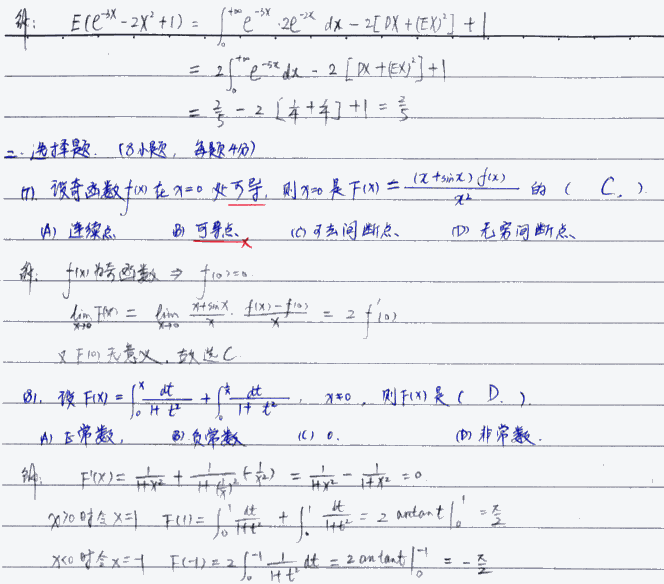 解: E(e^{-3X}-2X²+1) = ∫₀^{+∞} e^{-3x}·2e^{-2x} dx - 2[DX+(EX)²]+1
= 2∫₀^{+∞} e^{-5x} dx - 2[DX+(EX)²]+1
= 2/5 - 2[1/4+1/4]+1 = 2/5
二、选择题. (8小题, 每题4分)
(7). 设奇函数f(x)在x=0处可导, 则x=0是F(x)=(x+sinx)f(x)/x² 的( C. ).
(A) 连续点 (B) 可导点、 (C) 可去间断点、 (D) 无穷间断点、
解: f(x)为奇函数 ⇒ f(0)=0.
lim_{x→0} F(x) = lim_{x→0} (x+sinx)/x · (f(x)-f(0))/x = 2f'(0)
又F(0)无意义, 故选C.
(8). 设F(x)=∫₀^x dt/(1+t²) + ∫₀^{1/x} dt/(1+t²), x≠0, 则F(x)是( D. ).
(A) 正常数, (B) 负常数 (C) 0. (D) 非常数.
解: F'(x)= 1/(1+x²) + 1/(1+(1/x)²) (-1/x²) = 1/(1+x²) - 1/(1+x²) = 0
x>0时令x=1 F(1)=∫₀¹ dt/(1+t²) + ∫₀¹ dt/(1+t²) = 2 arctant |₀¹ = π/2
x<0时令x=-1 F(-1)=2∫₀^{-1} 1/(1+t²) dt = 2arctant |₀^{-1} = -π/2